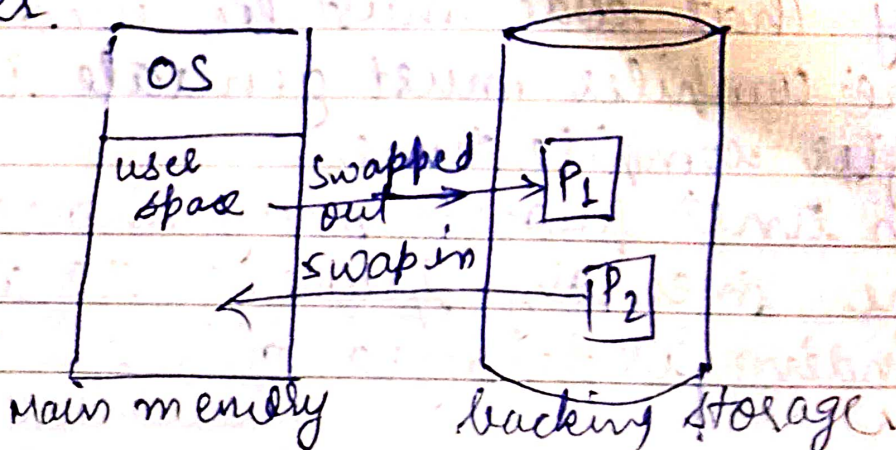 OS
user
space
swapped
out
P1
swap in
P2
Main memory
backing storage